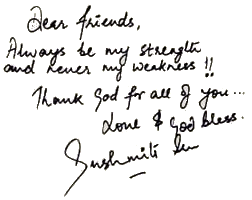 Dear friends,
Always be my strength
and never my weakness!!
Thank God for all of you...
Love & God bless.
Sushmita Sen